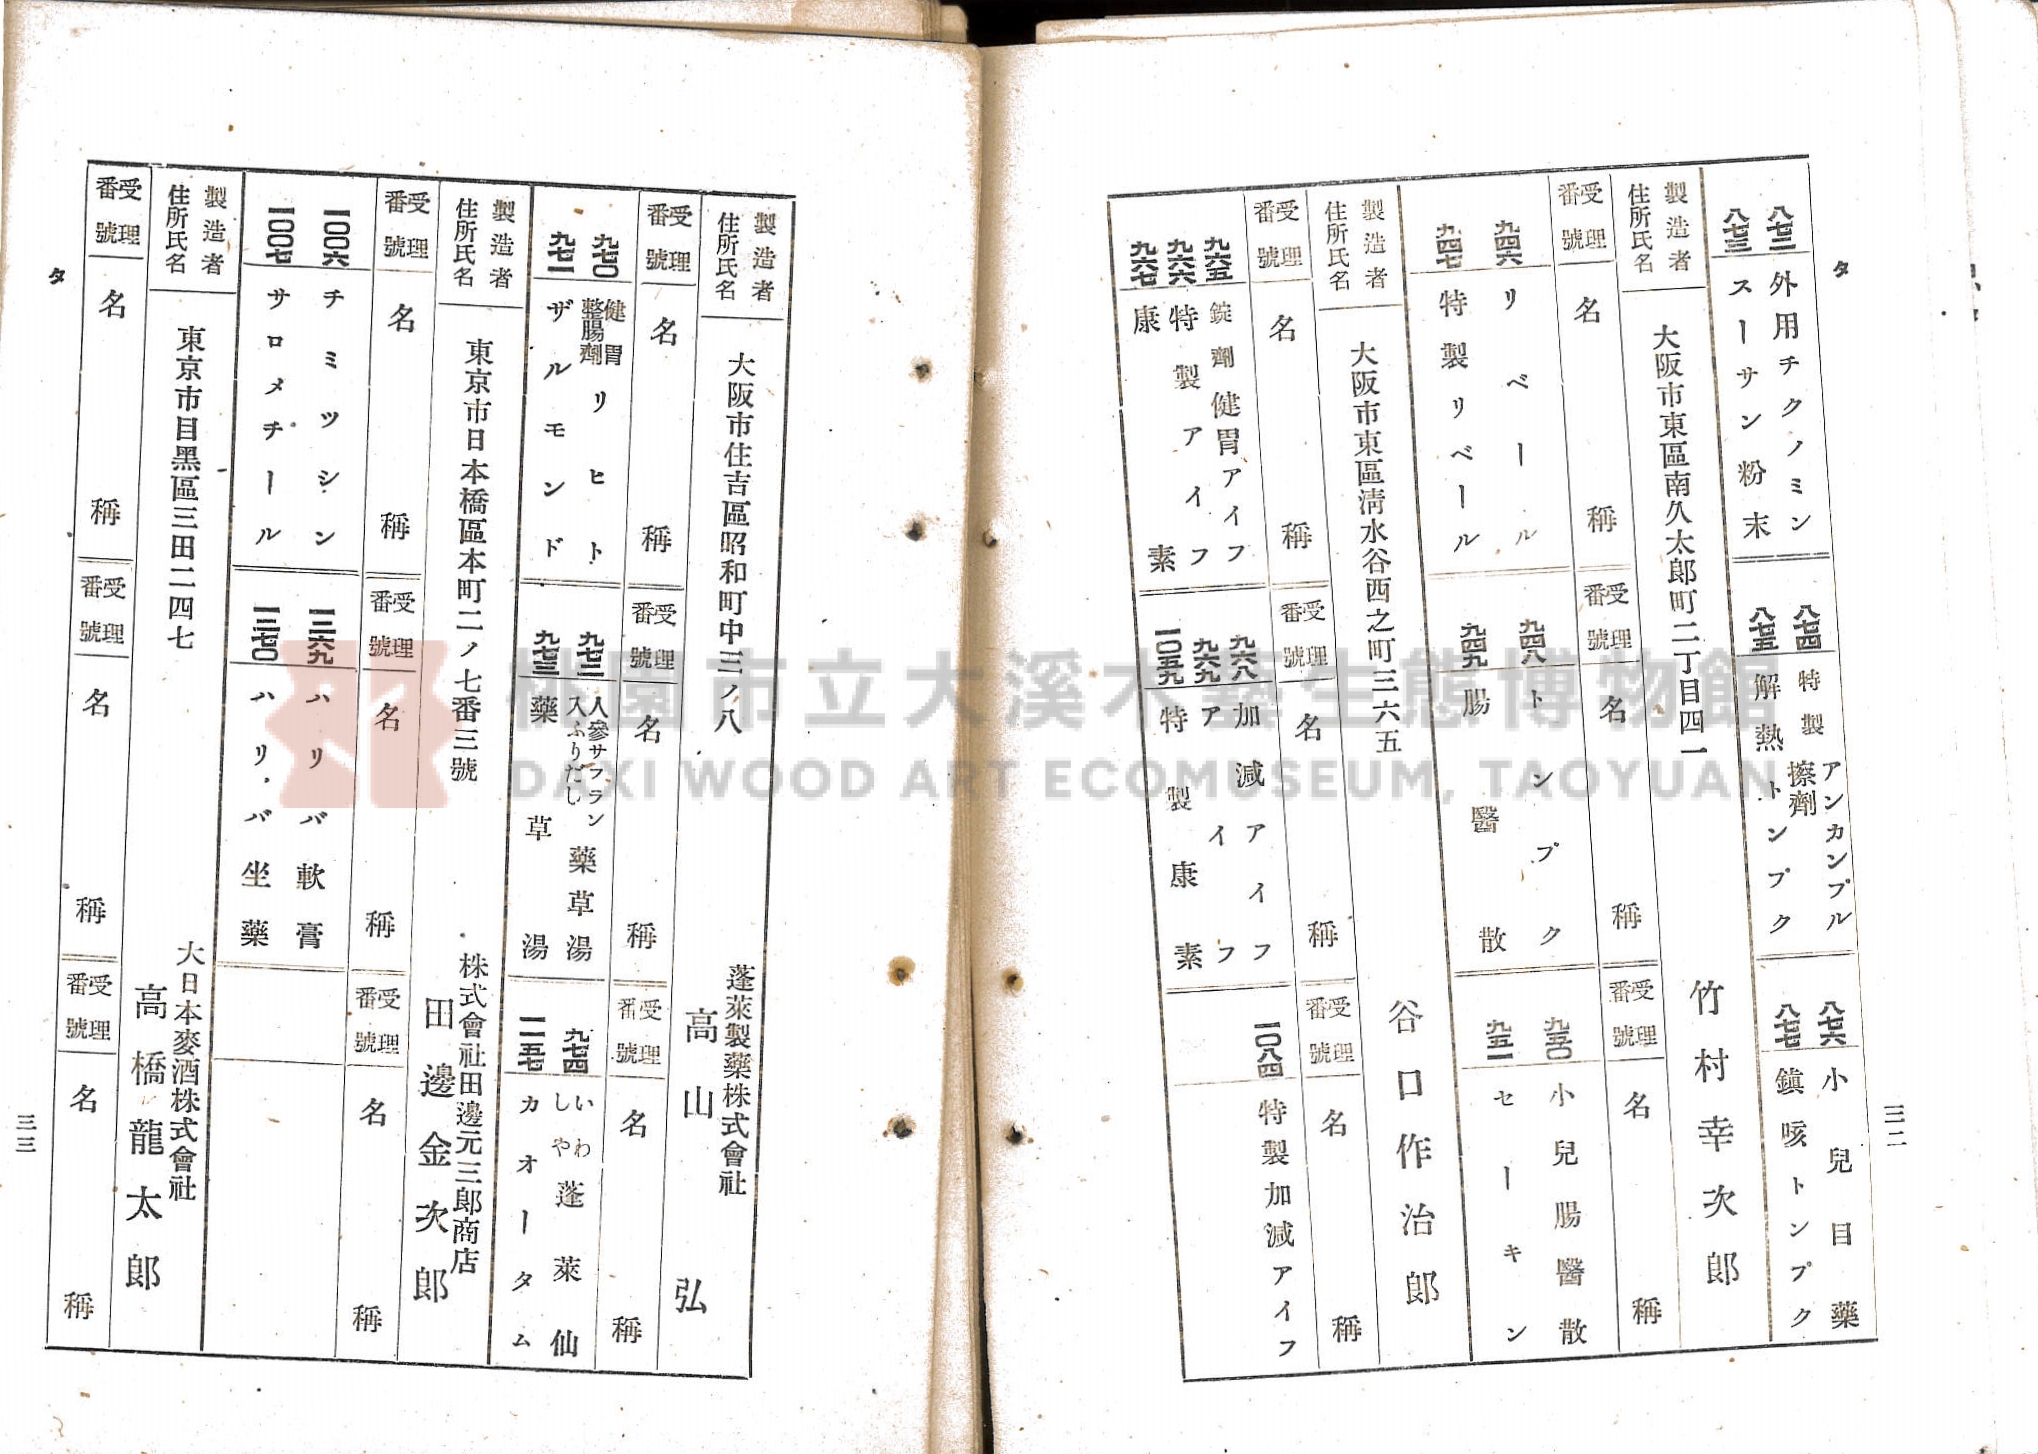 タ
三二
八七二 外用チクノミン
八七三 スーサン粉末
八七四 特製擦劑アンカンプル
八七五 解熱トンプク
八七六 小兒目藥
八七七 鎭咳トンプク
製造者住所氏名
大阪市東區南久太郎町二丁目四一
竹村幸次郎
受理番號 名稱 受理番號 名稱 受理番號 名稱
九四六 リベール
九四七 特製リベール
九四八 トンプク
九四九 腸醫散
九五〇 小兒腸醫散
九五一 セーキン
製造者住所氏名
大阪市東區淸水谷西之町三六五
谷口作治郎
受理番號 名稱 受理番號 名稱 受理番號 名稱
九六五 錠劑健胃アイフ
九六六 特製アイフ
九六七 康素
九六八 加減アイフ
九六九 アイフ
一〇五九 特製康素
一〇八四 特製加減アイフ
製造者住所氏名
大阪市住吉區昭和町中三ノ八
蓬萊製藥株式會社
高山弘
受理番號 名稱 受理番號 名稱 受理番號 名稱
九七〇 健胃整腸劑リヒト
九七一 ザルモンド
九七二 人參サフラン入ふりだし藥草湯
九七三 藥草湯
九七四 いわしや蓬萊仙
一一五七 カオータム
製造者住所氏名
東京市日本橋區本町二ノ七番三號
株式會社田邊元三郎商店
田邊金次郎
受理番號 名稱 受理番號 名稱 受理番號 名稱
一〇〇六 チミツシン
一〇〇七 サロメチール
一二六九 ハリバ軟膏
一二七〇 ハリバ坐藥
製造者住所氏名
東京市目黑區三田二四七
大日本麥酒株式會社
高橋龍太郎
受理番號 名稱 受理番號 名稱 受理番號 名稱
タ
三三
桃園市立大溪木藝生態博物館
DAXI WOOD ART ECOMUSEUM, TAOYUAN